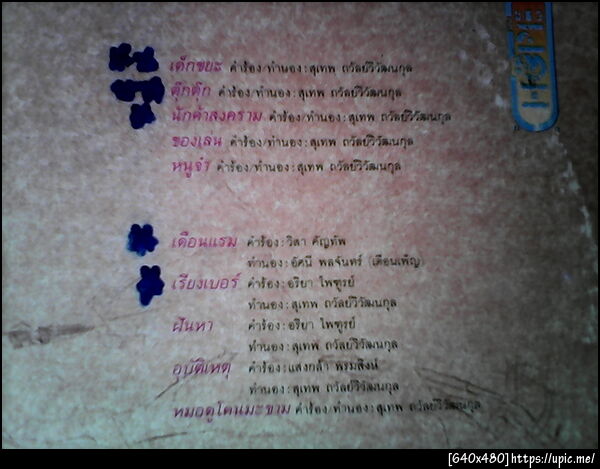 HOPE
เด็กขยะ คำร้อง/ทำนอง : สุเทพ ถวัลย์วิวัฒนกุล
ตุ๊กตุ๊ก คำร้อง/ทำนอง : สุเทพ ถวัลย์วิวัฒนกุล
นักค้าสงคราม คำร้อง/ทำนอง : สุเทพ ถวัลย์วิวัฒนกุล
ของเล่น คำร้อง/ทำนอง : สุเทพ ถวัลย์วิวัฒนกุล
หนูจ๋า คำร้อง/ทำนอง : สุเทพ ถวัลย์วิวัฒนกุล
เดือนแรม คำร้อง : วิสา คัญทัพ
ทำนอง : อัศนี พลจันทร์ (เดือนเพ็ญ)
เรียงเบอร์ คำร้อง : อริยา ไพฑูรย์
ทำนอง : สุเทพ ถวัลย์วิวัฒนกุล
ฝันหา คำร้อง : อริยา ไพฑูรย์
ทำนอง : สุเทพ ถวัลย์วิวัฒนกุล
อุบัติเหตุ คำร้อง : แสงกล้า พรมสิงห์
ทำนอง : สุเทพ ถวัลย์วิวัฒนกุล
หมอดูโคนมะขาม คำร้อง/ทำนอง : สุเทพ ถวัลย์วิวัฒนกุล
[640x480]https://upic.me/